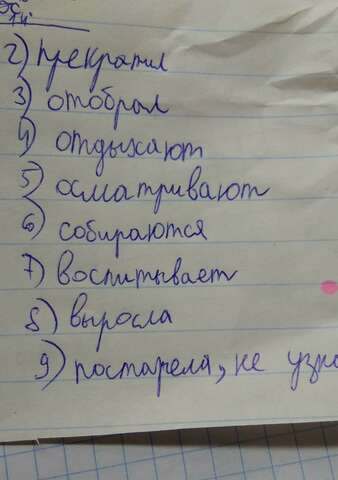 2) прекратил
3) отобрал
4) отдыхают
5) осматривают
6) собираются
7) воспитывает
8) выросла
9) постарела, не